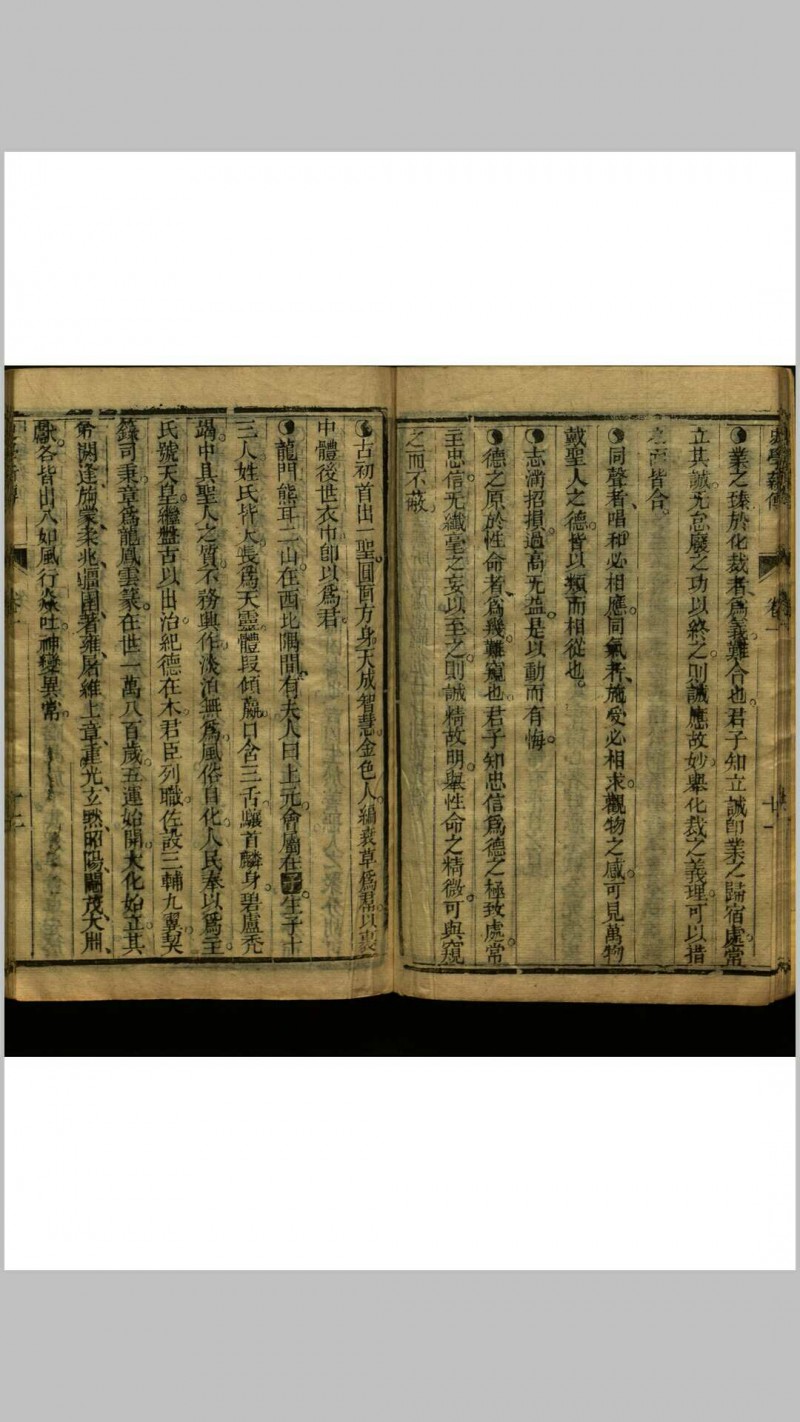 卷一
業之臻於化裁者、爲義難合也。君子知立誠卽業之歸宿處、常
立其誠、无怠廢之功以終之、則誠應故妙、舉化裁之義理、可以措
之而皆合。
同聲者、唱和必相應。同氣者、施受必相求。觀物之感、可見萬物
戴聖人之德、皆以類而相從也。
志滿招損。過高无益。是以動而有悔。
德之原於性命者、爲幾難窺也。君子知忠信爲德之極致處、常
主忠信、无纖毫之妄以至之、則誠精故明、舉性命之精微、可與窺
之而不蔽。
古初首出一聖。圓面方身。天成智慧。金色人。編衰草爲 以衷
中體。後世衣巾卽以爲君。
龍門熊耳二山。在西北隅間。有夫人曰上元。會屬在子。生子十
三人。姓氏皆大。長爲天靈。體段傾 。口含三舌。驤首麟身。碧盧禿
竭。中具聖人之質。不務興作。淡泊無爲。風俗自化。人民奉以爲主。
氏號天皇。繼盤古以出治。紀德在木。君臣列職。佐設三輔九翼。契
籙司秉。章爲龍鳳雲篆。在世一萬八百歲。五運始開。大化始立。其
弟閼逢、旃蒙、柔兆、疆圉、著雍、屠維、上章、重光、玄黓、昭陽、閹茂、大淵、
獻。各皆出入如風。行 吐 。神變異常。